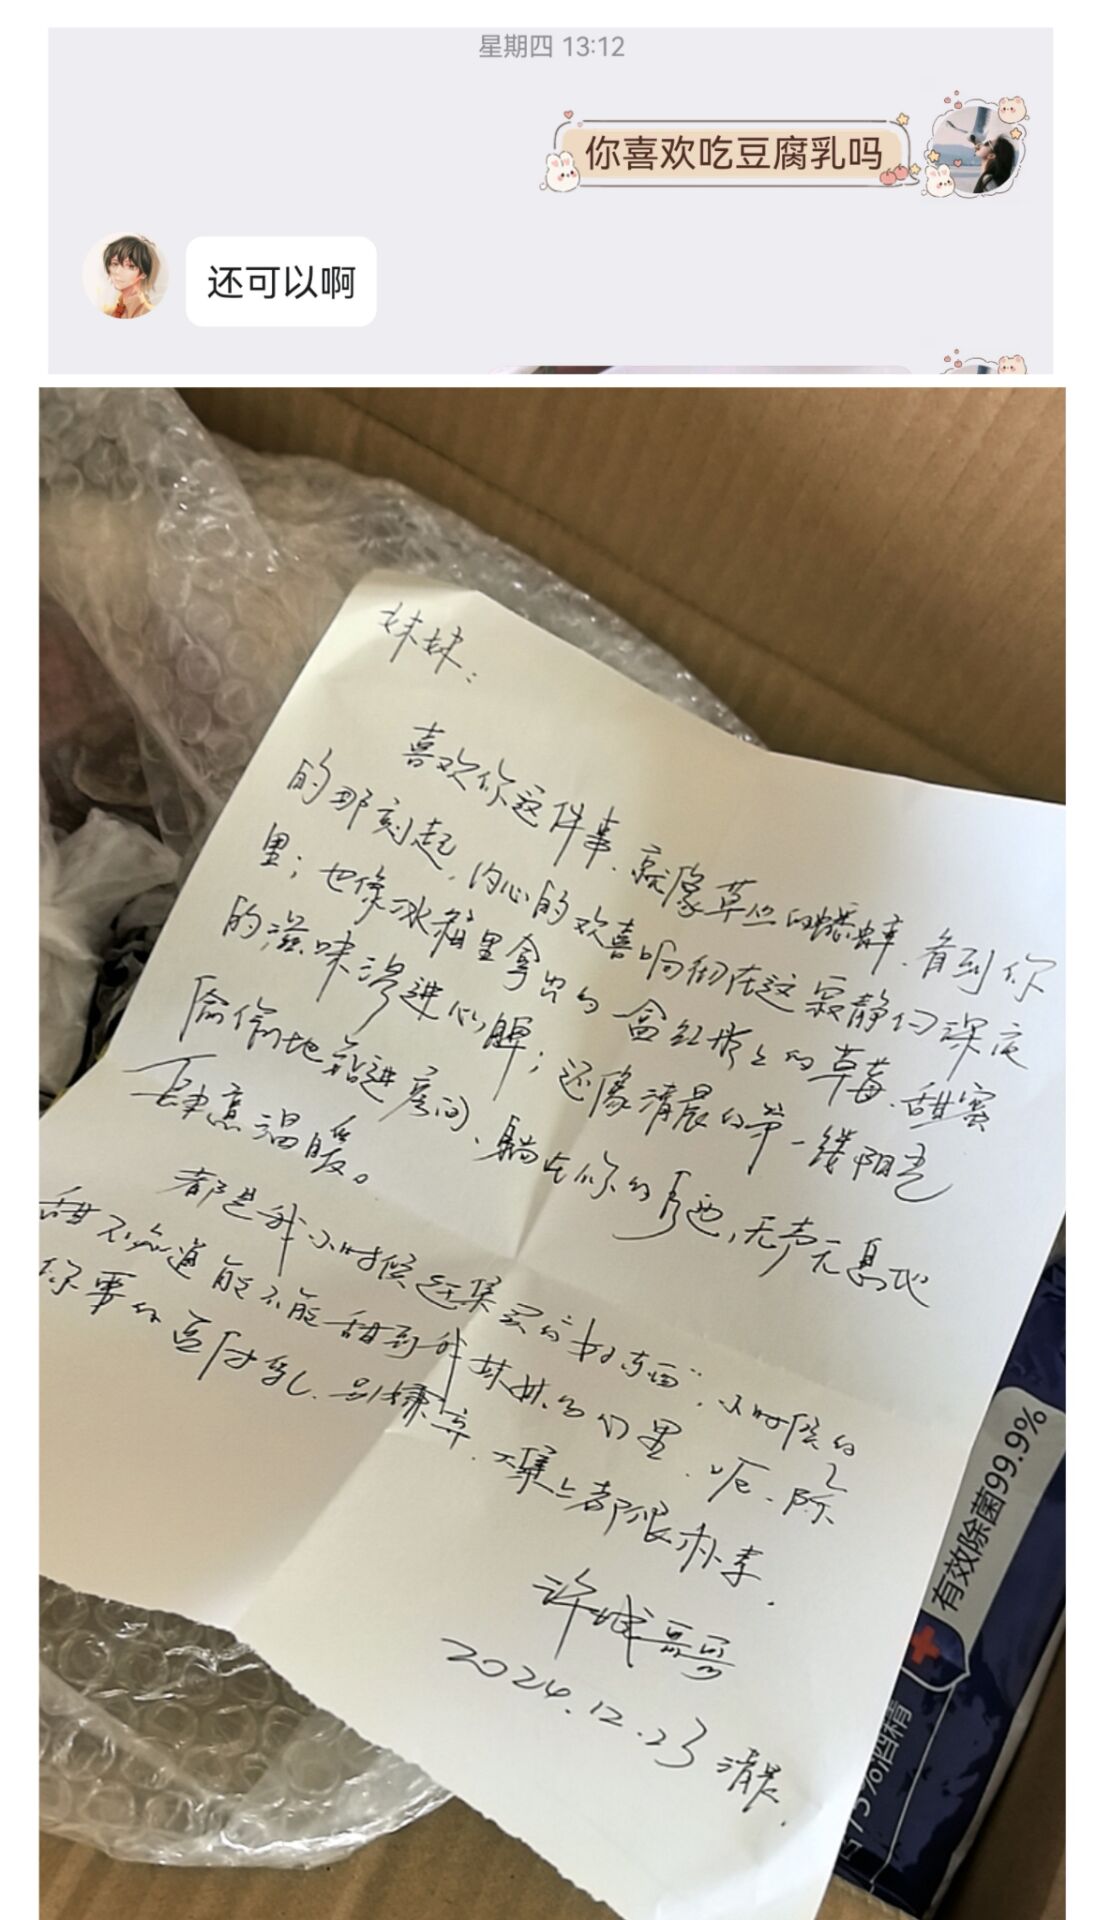 星期四 13:12
你喜欢吃豆腐乳吗
还可以啊
妹妹:
喜欢你这件事、就像草丛的蟋蟀、看到你
的那刻起,内心的欢喜响彻在这寂静的深夜
里;也像冰箱里拿出的一盒红彤彤的草莓、甜蜜
的滋味渗进心脾;还像清晨的第一缕阳光
偷偷地钻进房间、躺在你的身边,无声无息地
肆意温暖。
都是我小时候赶集买的“好东西”,小时候的
甜不知道能不能甜到我妹妹的心里、呃、除了
你要的豆付乳、别嫌弃、大集上都很朴素.
许城哥哥
2024.12.23 清晨.
有效除菌99.9%
75%酒精